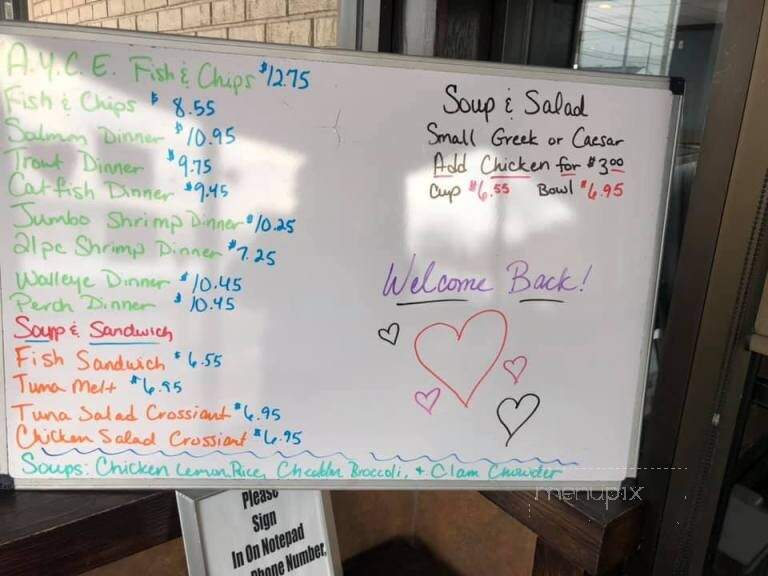 A.Y.C.E. Fish & Chips $12.75
Fish & Chips $8.55
Salmon Dinner $10.95
Trout Dinner $9.75
Catfish Dinner $9.45
Jumbo Shrimp Dinner $10.25
21pc Shrimp Dinner $7.25
Walleye Dinner $10.45
Perch Dinner $10.45
Soup & Sandwich
Fish Sandwich $6.55
Tuna Melt $6.95
Tuna Salad Crossiant $6.95
Chicken Salad Crossiant $6.95
Soups: Chicken Lemon Rice, Cheddar Broccoli, + Clam Chowder
Soup & Salad
Small Greek or Caesar
Add Chicken for $3.00
Cup $6.55 Bowl $6.95
Welcome Back!
Please
Sign
In On Notepad
Phone Number,
menupix